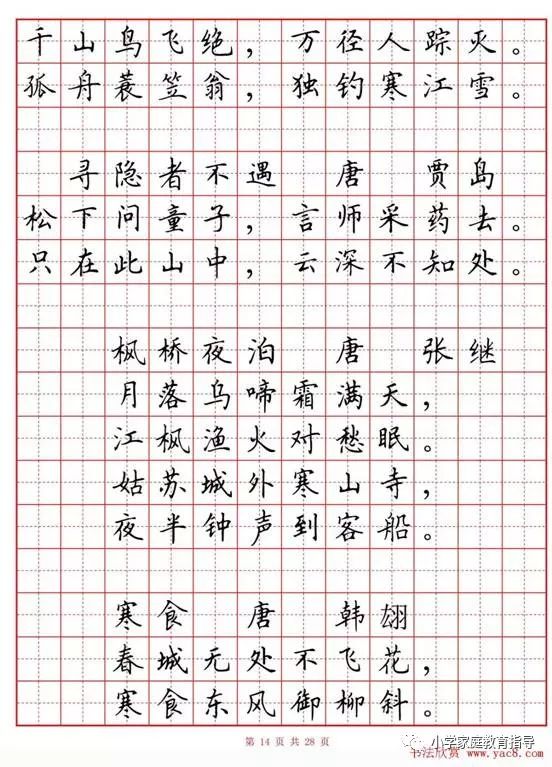 千山鸟飞绝，万径人踪灭。
孤舟蓑笠翁，独钓寒江雪。
寻隐者不遇 唐 贾岛
松下问童子，言师采药去。
只在此山中，云深不知处。
枫桥夜泊 唐 张继
月落乌啼霜满天，
江枫渔火对愁眠。
姑苏城外寒山寺，
夜半钟声到客船。
寒食 唐 韩翃
春城无处不飞花，
寒食东风御柳斜。
第 14 页 共 28 页
小学家庭教育指导
书法欣赏 www.yac8.com